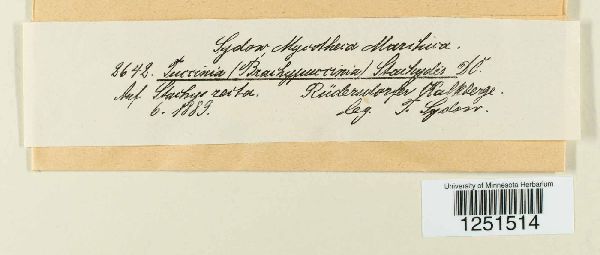 Sydow, Mycotheca Marchica.
2642. Puccinia (Brachypuccinia) Stachydis DC.
Auf Stachys recta. Rüdersdorfer Kalkberge.
6. 1889. leg. P. Sydow.
University of Minnesota Herbarium
1251514